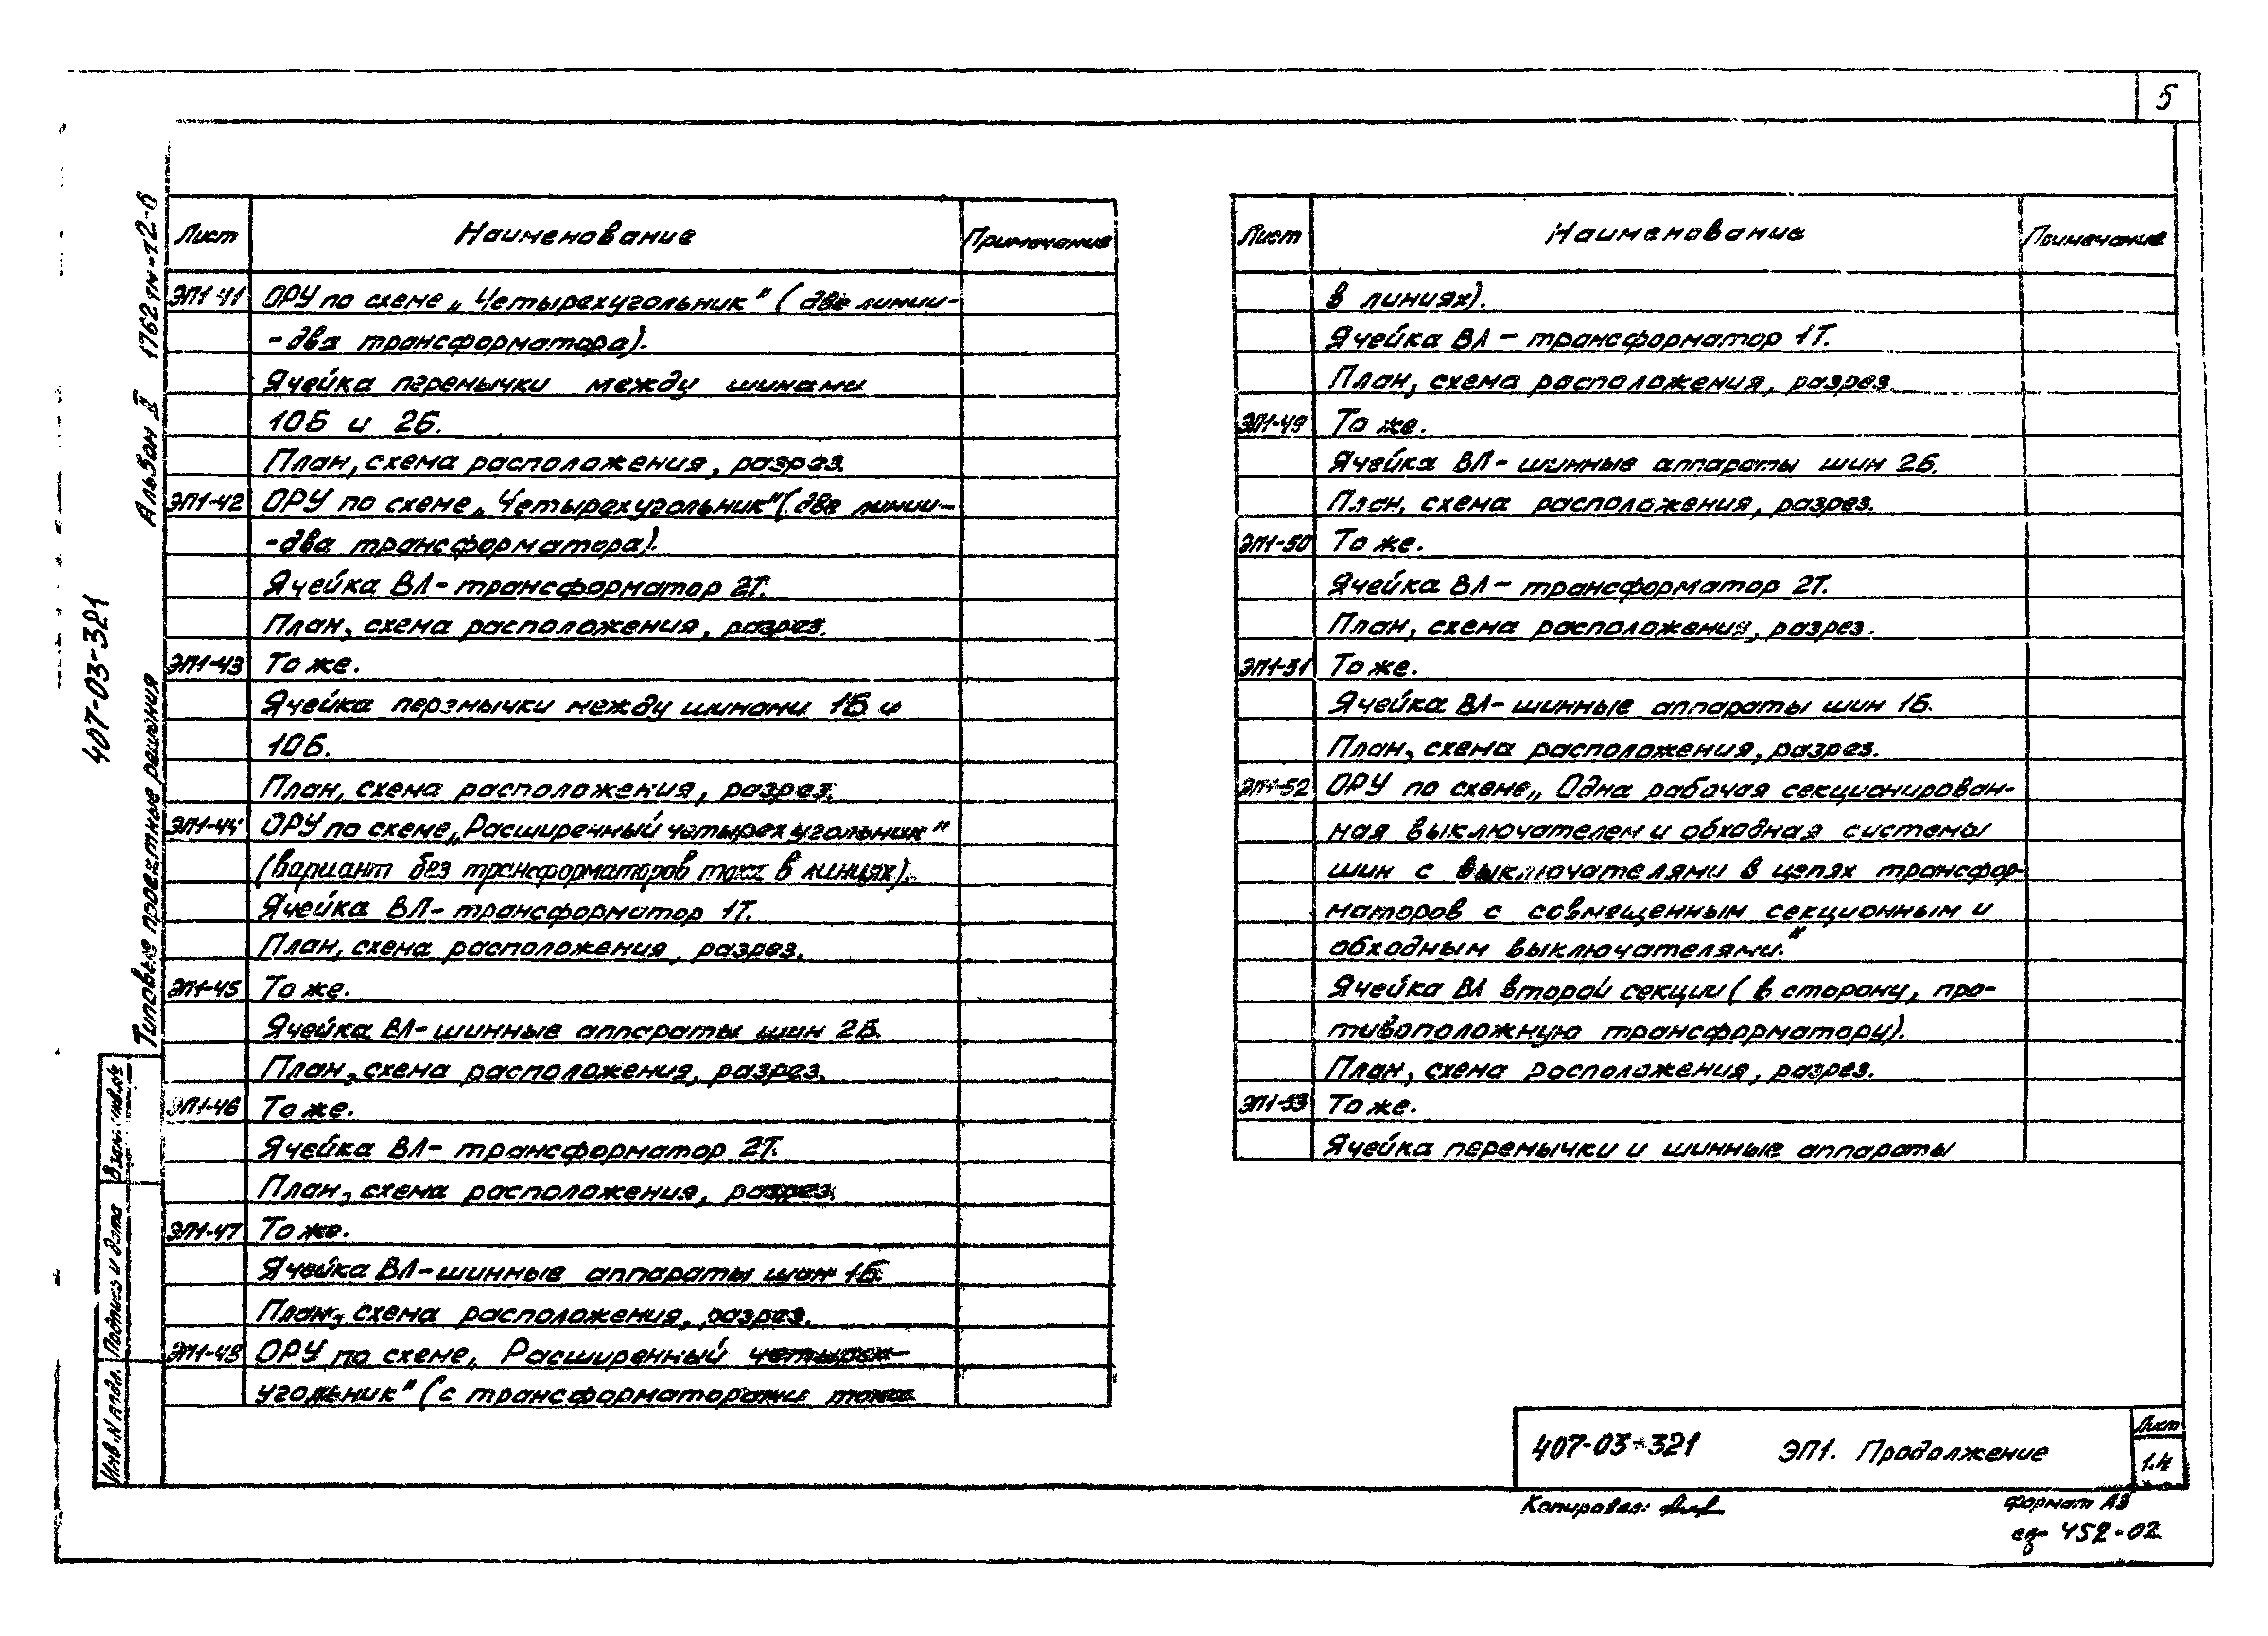 5
Лист Наименование Примечание
ЭП1-41 ОРУ по схеме „Четырехугольник" (две линии-
-два трансформатора).
Ячейка перемычки между шинами
1ОБ и 2Б.
План, схема расположения, разрез.
ЭП1-42 ОРУ по схеме „Четырехугольник" (две линии-
-два трансформатора).
Ячейка ВЛ-трансформатор 2Т.
План, схема расположения, разрез.
ЭП1-43 То же.
Ячейка перемычки между шинами 1Б и
1ОБ.
План, схема расположения, разрез.
ЭП1-44 ОРУ по схеме „Расширенный четырехугольник"
(вариант без трансформаторов тока в линиях).
Ячейка ВЛ-трансформатор 1Т.
План, схема расположения, разрез.
ЭП1-45 То же.
Ячейка ВЛ-шинные аппараты шин 2Б.
План, схема расположения, разрез.
ЭП1-46 То же.
Ячейка ВЛ-трансформатор 2Т.
План, схема расположения, разрез.
ЭП1-47 То же.
Ячейка ВЛ-шинные аппараты шин 1Б.
План, схема расположения, разрез.
ЭП1-48 ОРУ по схеме „Расширенный четырех-
угольник" (с трансформаторами тока
Лист Наименование Примечание
в линиях).
Ячейка ВЛ-трансформатор 1Т.
План, схема расположения, разрез.
ЭП1-49 То же.
Ячейка ВЛ-шинные аппараты шин 2Б.
План, схема расположения, разрез.
ЭП1-50 То же.
Ячейка ВЛ-трансформатор 2Т.
План, схема расположения, разрез.
ЭП1-51 То же.
Ячейка ВЛ-шинные аппараты шин 1Б.
План, схема расположения, разрез.
ЭП1-52 ОРУ по схеме „Одна рабочая секционирован-
ная выключателем и обходная системы
шин с выключателями в цепях трансфор-
маторов с совмещенным секционным и
обходным выключателями."
Ячейка ВЛ второй секции (в сторону, про-
тивоположную трансформатору).
План, схема расположения, разрез.
ЭП1-53 То же.
Ячейка перемычки и шинные аппараты
407-03-321 ЭП1. Продолжение
Лист
1.4
Копировал:
Формат А3
452-02
407-03-321
Типовые проектные решения Альбом II 1762тм-т2-6
Инв. № подл. Подпись и дата Взам. инв. №